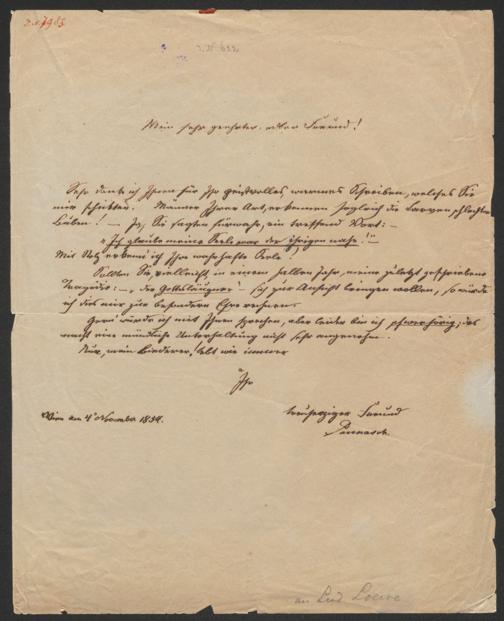 Mein sehr geehrter, edler Freund!
Sehr danke ich Ihnen für Ihr geistvolles, warmes Schreiben, welches Sie
mir schickten. Männer Ihrer Art, erkennen sogleich die Larven schlechter
Buben! – Ja, Sie sagten fürwahr, ein treffend Wort: –
„Ich glaube meine Seele war der Ihrigen nahe!" –
Mit Stolz erkenn' ich Ihre wahrhafte Seele!
Sollten Sie vielleicht, in einem halben Jahr, meine zuletzt geschriebene
Tragödie: – „der Gottesläugner" – sich zur Ansicht bringen wollen, so würde
ich dieß mir zur besondern Ehre rechnen.
Gern würde ich mit Ihnen sprechen, aber leider bin ich schwerhörig; das
macht eine mündliche Unterhaltung nicht sehr angenehm.
Nur, mein Biederer, lebt wie immer
Ihr
Wien am 4 November 1854.
treuherziger Freund
Pannasch
an Lud. Loewe